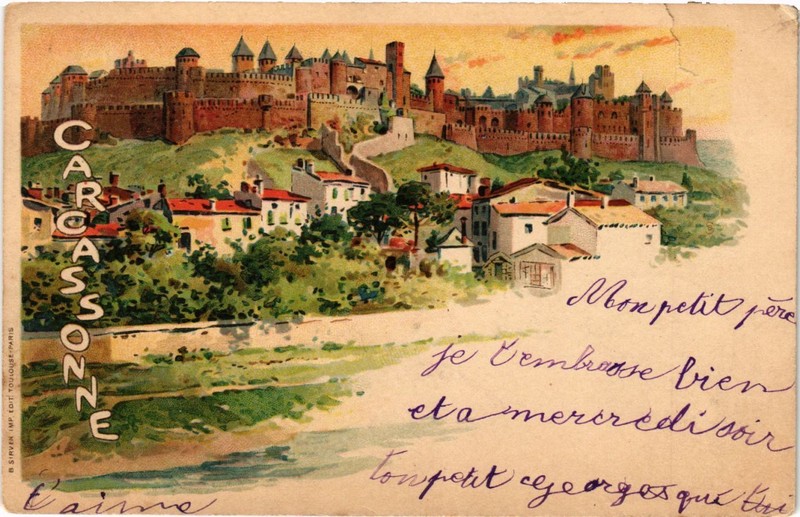 CARCASSONNE
B. SIRVEN IMP. EDIT. TOULOUSE-PARIS
Mon petit père
je t'embrasse bien
et a mercredi soir
ton petit Georges qui
t'aime